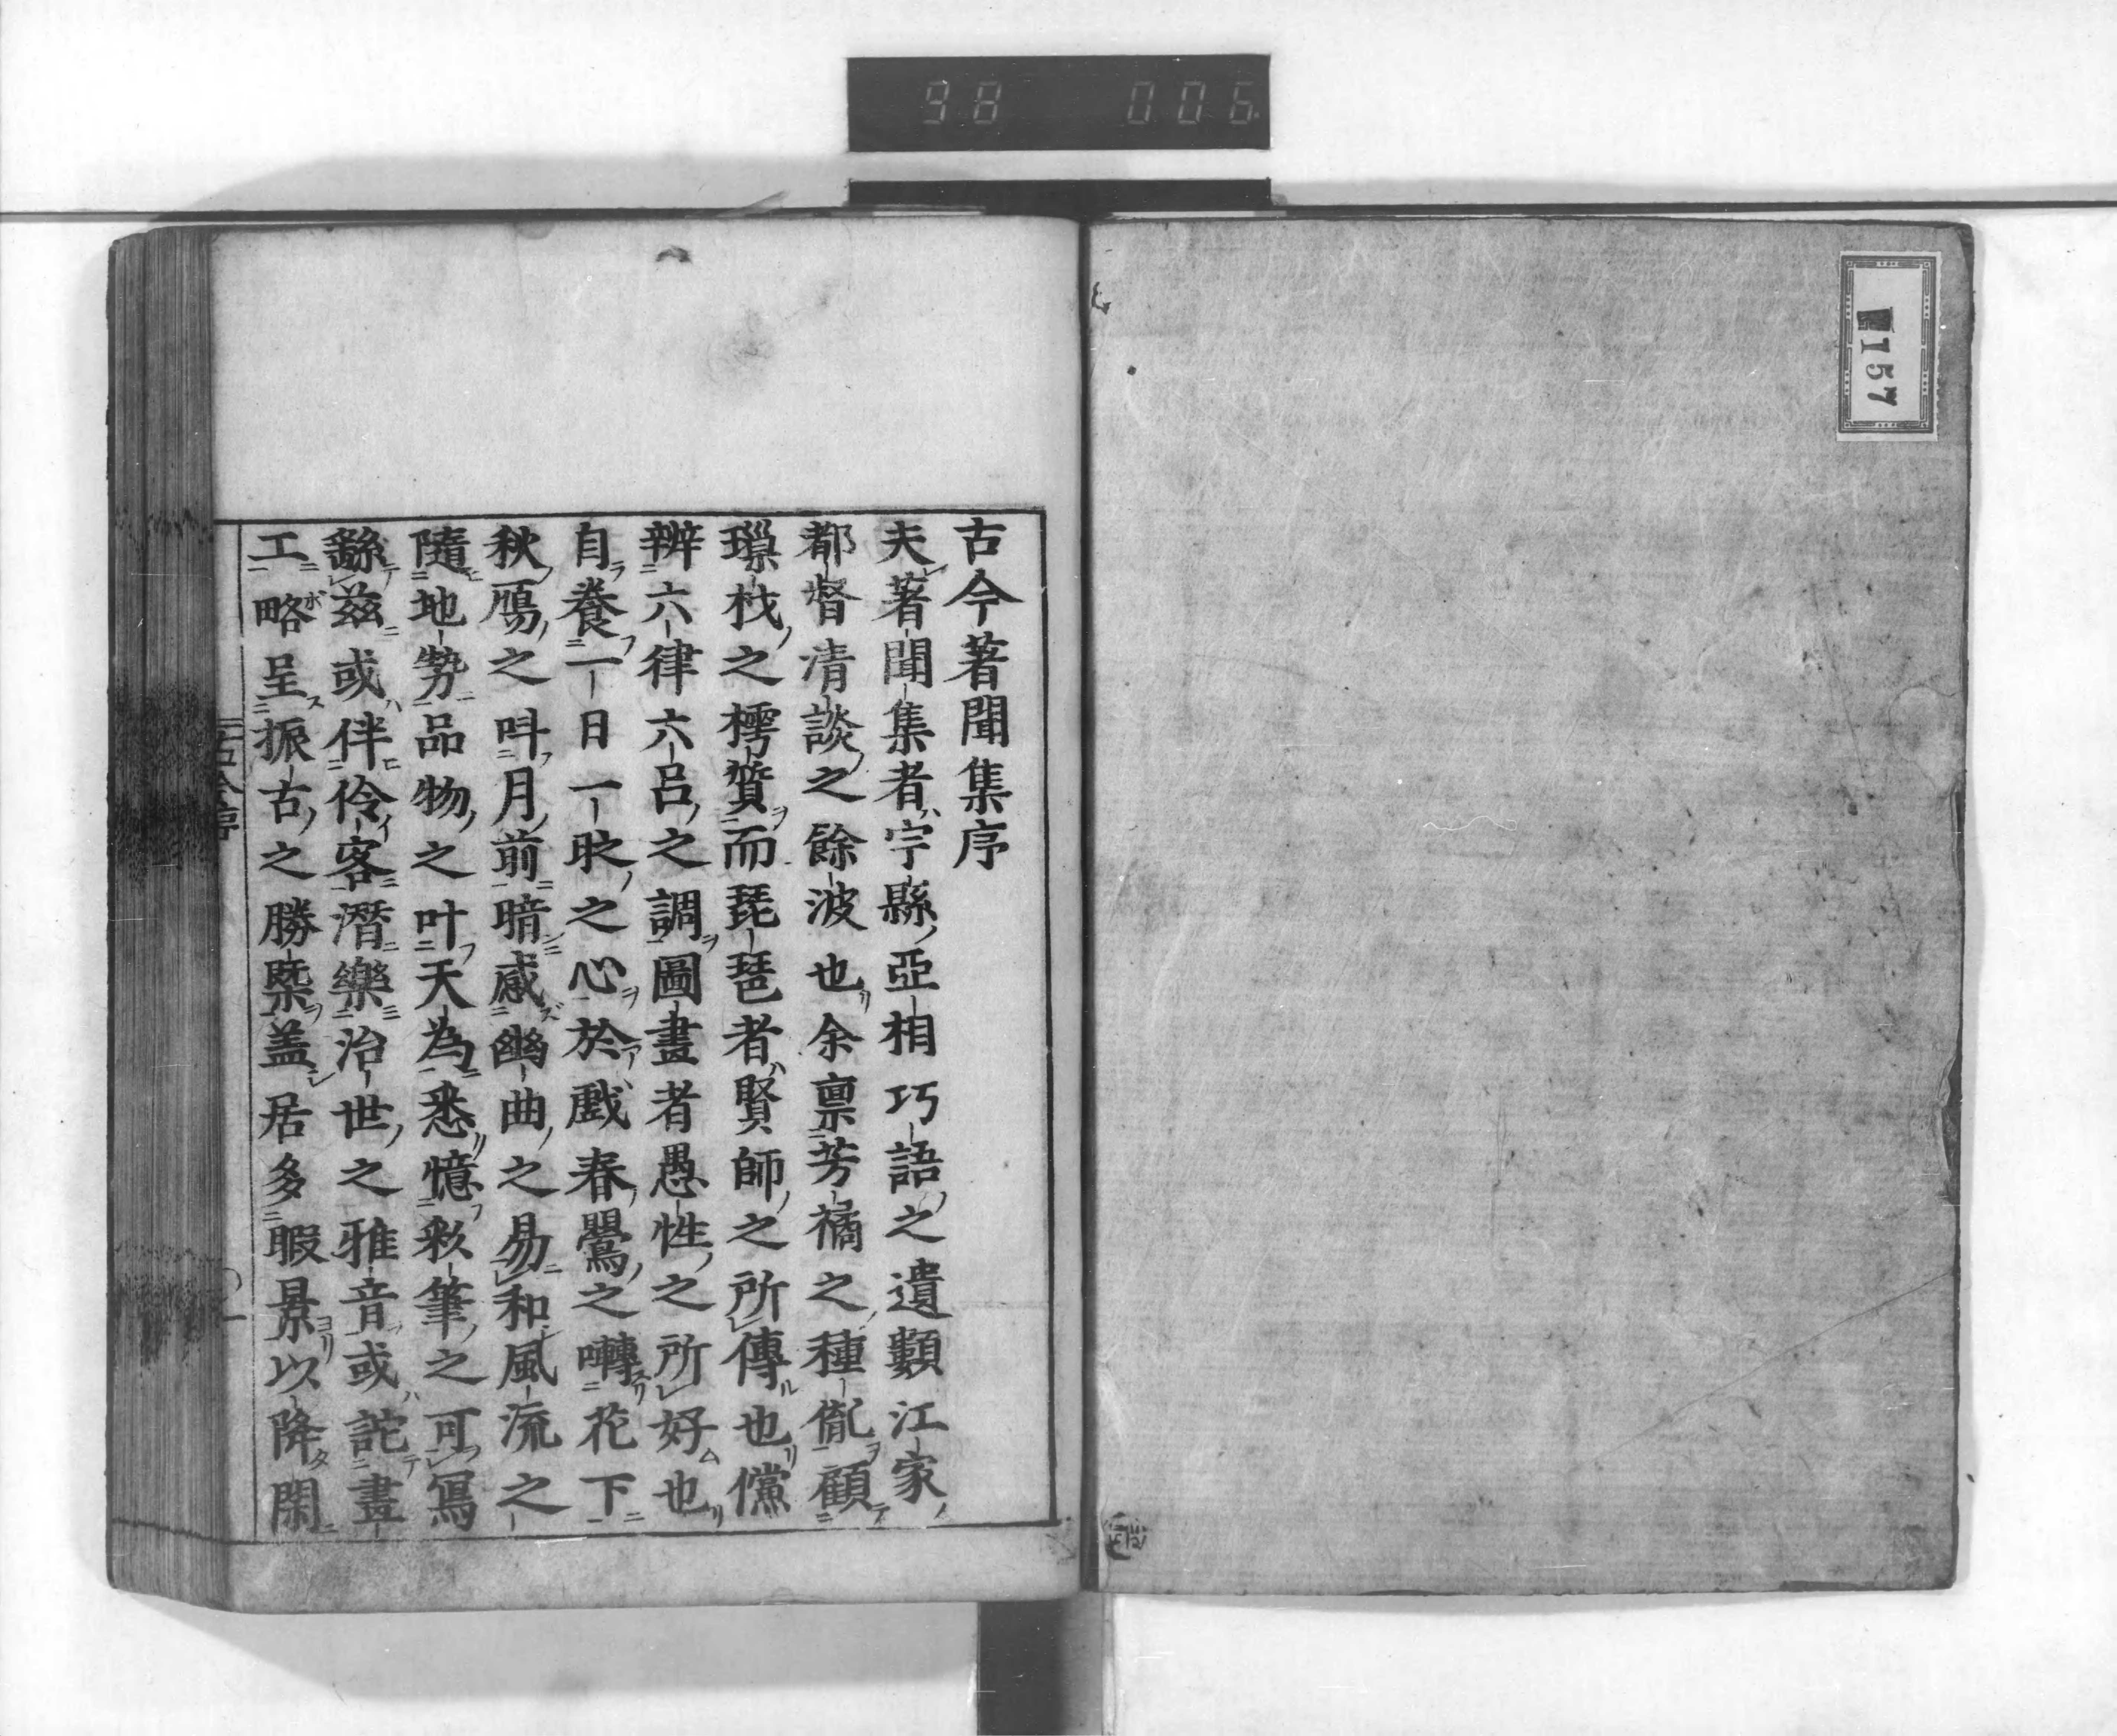 98 006
157
古今著聞集序
夫著聞集者宇縣亞相巧語之遺類江家
都督清談之餘波也余禀芳橘之種胤顧
璅材之樗質而琵琶者賢師之所傳也儻
辨六律六呂之調圖畫者愚性之所好也
自養一日一時之心於戲春鶯之囀花下
秋鴈之叫月前暗感幽曲之易和風流之
隨地勢品物之叶天為悉憶彩筆之可寫
繇茲或伴伶客潛樂治世之雅音或詫畫
工略呈振古之勝槩盖居多暇景以降閑